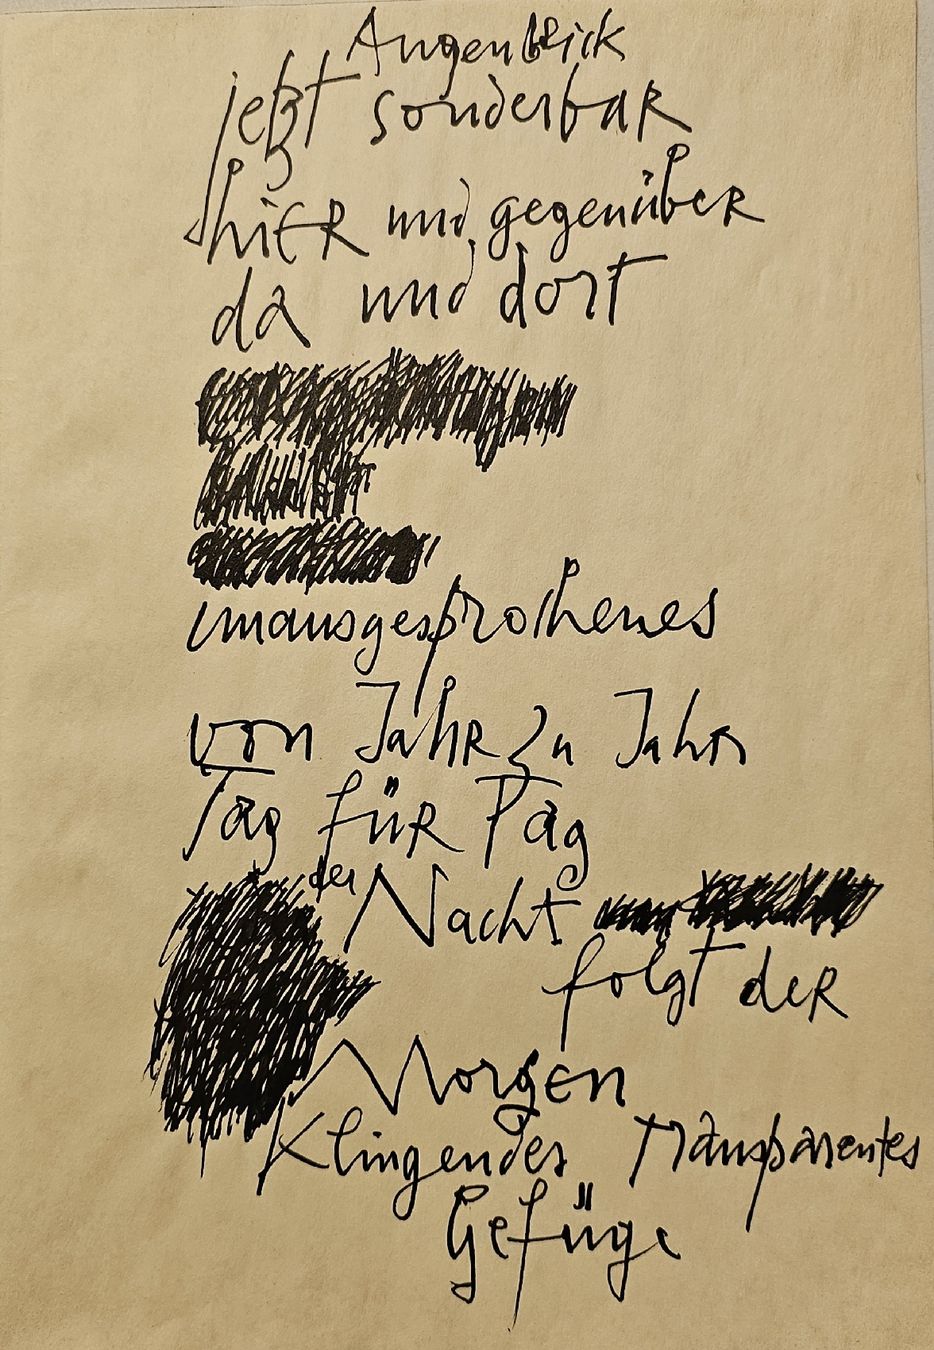 Augenblick
jetzt sonderbar
hier und gegenüber
da und dort
unausgesprochenes
von Jahr zu Jahr
Tag für Tag
der Nacht
folgt der
Morgen
Klingendes transparentes
Gefüge